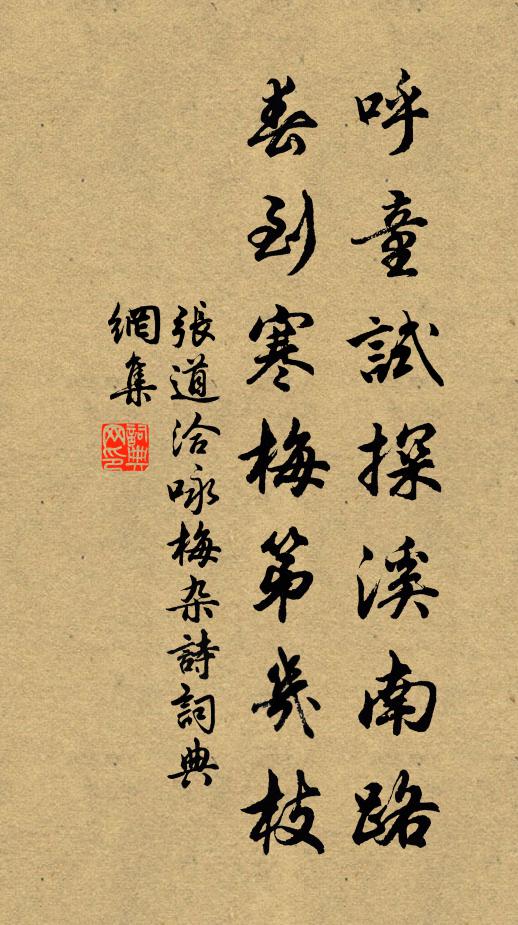 呼童試探溪南路
春到寒梅第幾枝
張道洽咏梅杂詩詞典
網集
詞典网印